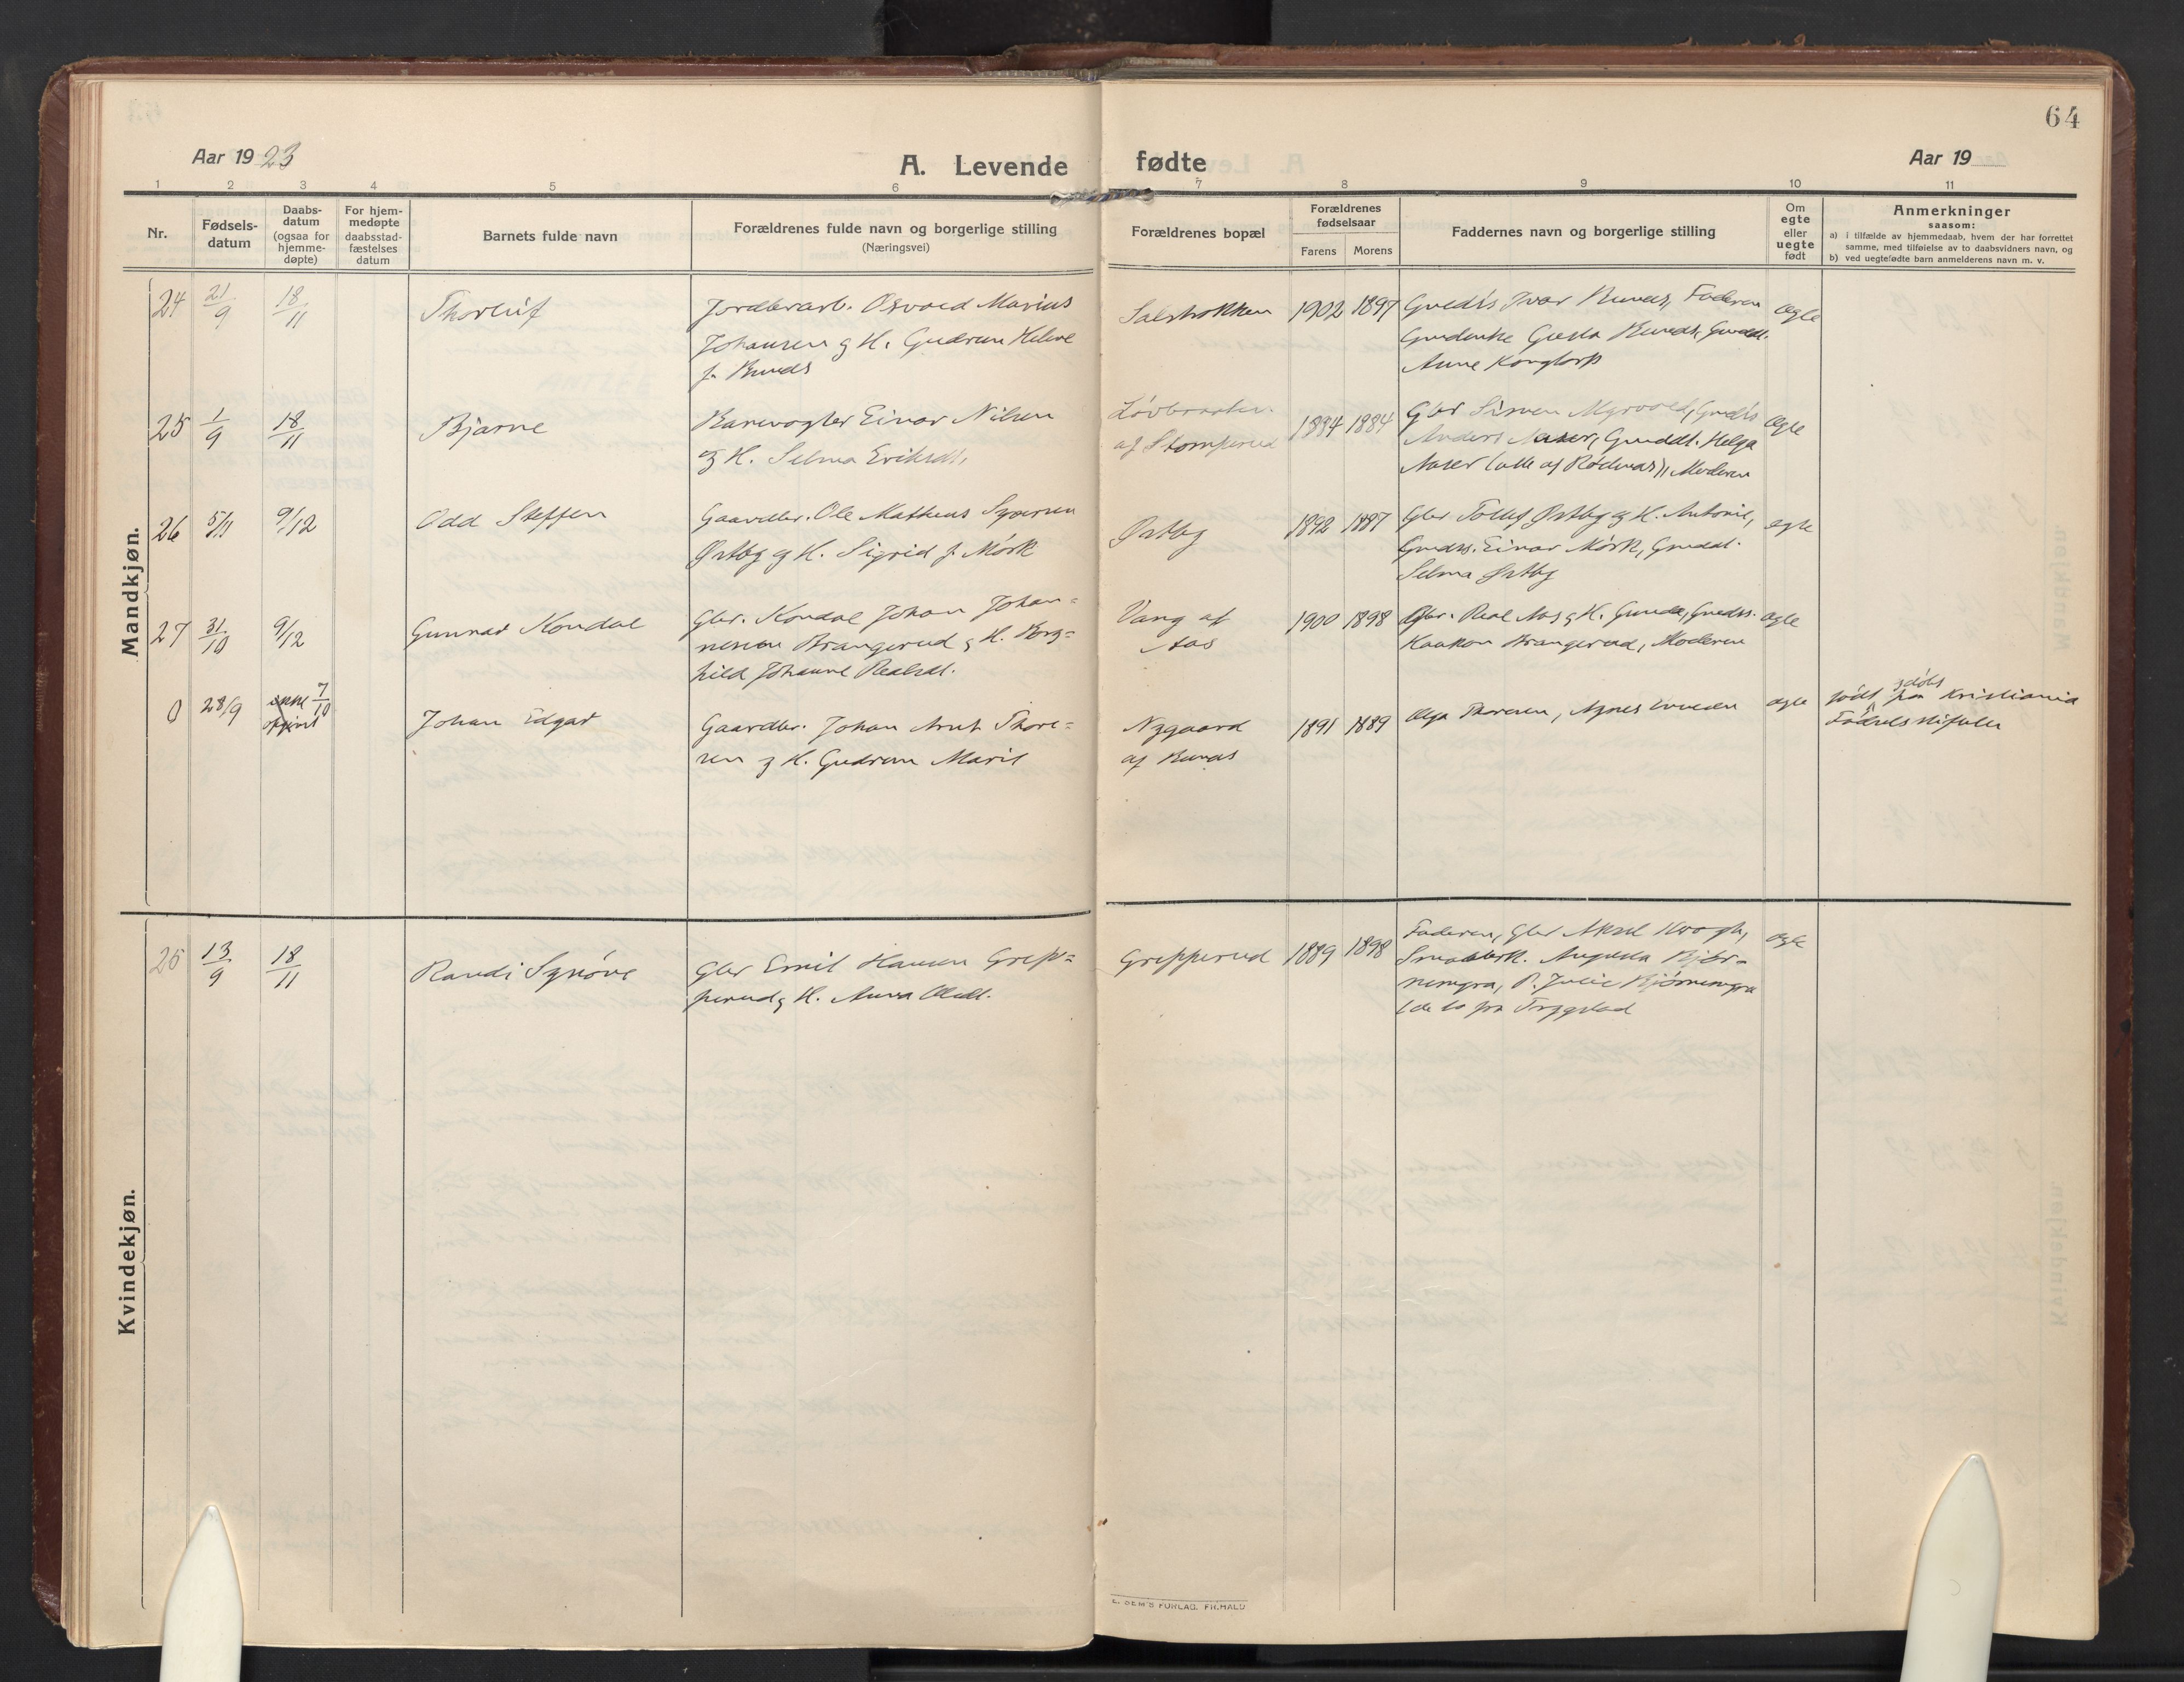 64
Aar 1923
A. Levende
fødte
Aar 19
1 2 3 4 5 6 7 8 9 10 11
Nr.
Fødsels-
datum
Daabs-
datum
(ogsaa for
hjemme-
døpte)
For hjem-
medøpte
daabsstad-
fæstelses
datum
Barnets fulde navn
Forældrenes fulde navn og borgerlige stilling
(Næringsvei)
Forældrenes bopæl
Forældrenes
fødselsaar
Farens Morens
Faddernes navn og borgerlige stilling
Om
egte
eller
uegte
født
Anmerkninger
saasom:
a) i tilfælde av hjemmedaab, hvem der har forrettet
samme, med tilføielse av to daabsvidners navn, og
b) ved uegtefødte barn anmelderens navn m. v.
Mandkjøn.
24 21/9 18/11 Thorleif
Osvald Marius
Johansen og H. Gudrun Helene
f. Bunds
1902 1897
Ivar Bunds, Faderen
Anne Kongtorp
egte
25 1/9 18/11 Bjarne
Banevogter Einar Nilsen
og H. Selma Eriksdt.
af Stomperud
1894 1884
Anders Naser, Gmddt. Helga
Naser (alle af Rødenæs), Moderen
egte
26 5/11 9/12 Odd Steffen
Gaardbr. Ole Matheus
Østby og H. Sigrid f. Mørk
Østby
1892 1887
Gbr Tollef Østby og H. Antonie,
Gmds. Einar Mørk, Gmddt.
Selma Østby
egte
27 31/10 9/12 Gunnar Kondal
Gbr. Kondal Johan Johan=
nesen Brangerud og H. Borg=
hild Johanne Realsdt.
Vang af
Aas
1900 1898
Gbr. Real Aas og H. Gunda, Gmds.
Haakon Brangerud, Moderen
egte
0 28/9 7/10
Johan Edgar
Gaardbr. Johan Arnt Thore=
sen og H. Gudrun Marie
Nygaard
af Bunds
1891 1889
Olga Thoresen, Agnes
egte
født
Kristiania
Fødselsstiftelse
Kvindekjøn.
25 13/9 18/11
Randi Synøve
Gbr Emil Hansen Grepp=
perud og H. Anna Olsdt.
Grepperud
1889 1898
Faderen, Gbr Aksel Krogh,
Augusta Bjør-
nemyra, P. Julie Bjørnemyra
(de to fra Trygstad
egte
E. SEM'S FORLAG. FR.HALD